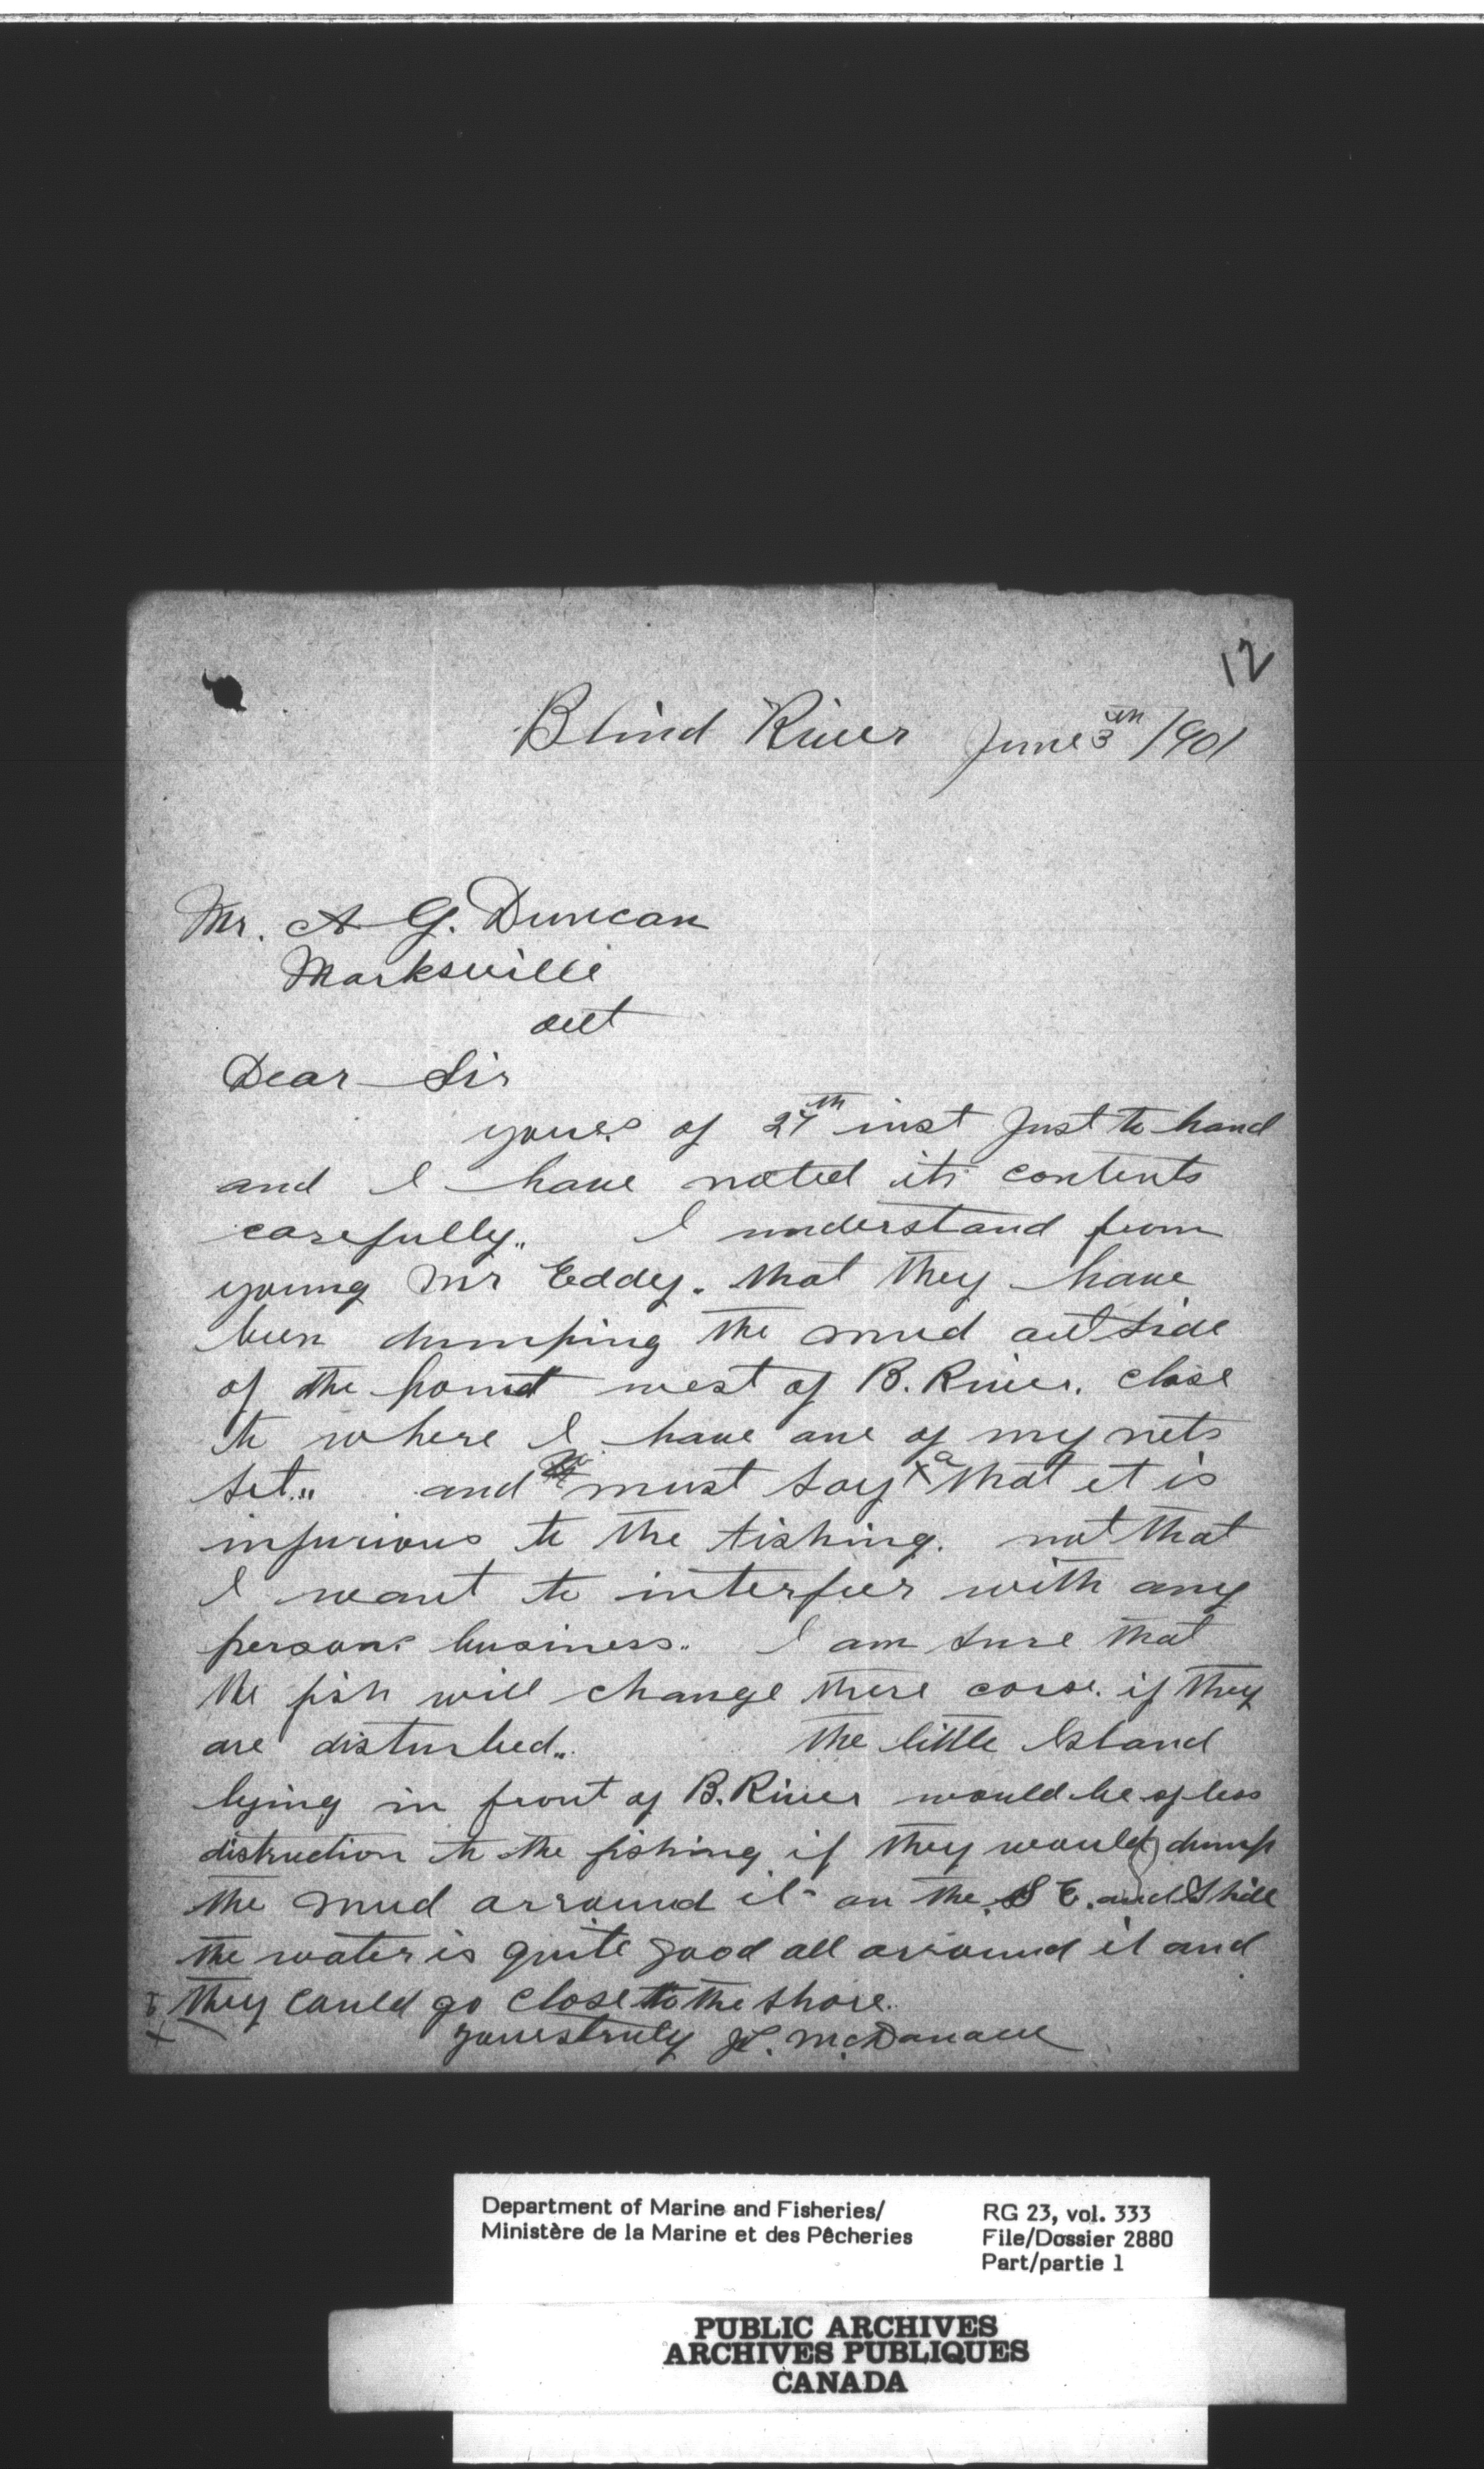 12
Blind River June 3th 1901
Mr. A G. Duncan
Marksville
Ont
Dear Sir
yours of 27th inst Just to hand
and I have noted its contents
carefully,, I understand from
young Mr Eddy. that they have
been dumping the mud out side
of the point west of B. River. close
to where I have one of my nets
set,, and must say that it is
injurious to the fishing. not that
I want to interfeer with any
persons business,, I am sure that
the fish will change there corse. if they
are disturbed,, the little Island
lying in front of B. River would be of less
distruction to the fishing if they would dump
the mud arround it on the S E. and S side
the water is quite good all arround it and
they could go close to the shore.
yours truly McDonald
Department of Marine and Fisheries/
Ministère de la Marine et des Pêcheries
RG 23, vol. 333
File/Dossier 2880
Part/partie 1
PUBLIC ARCHIVES
ARCHIVES PUBLIQUES
CANADA